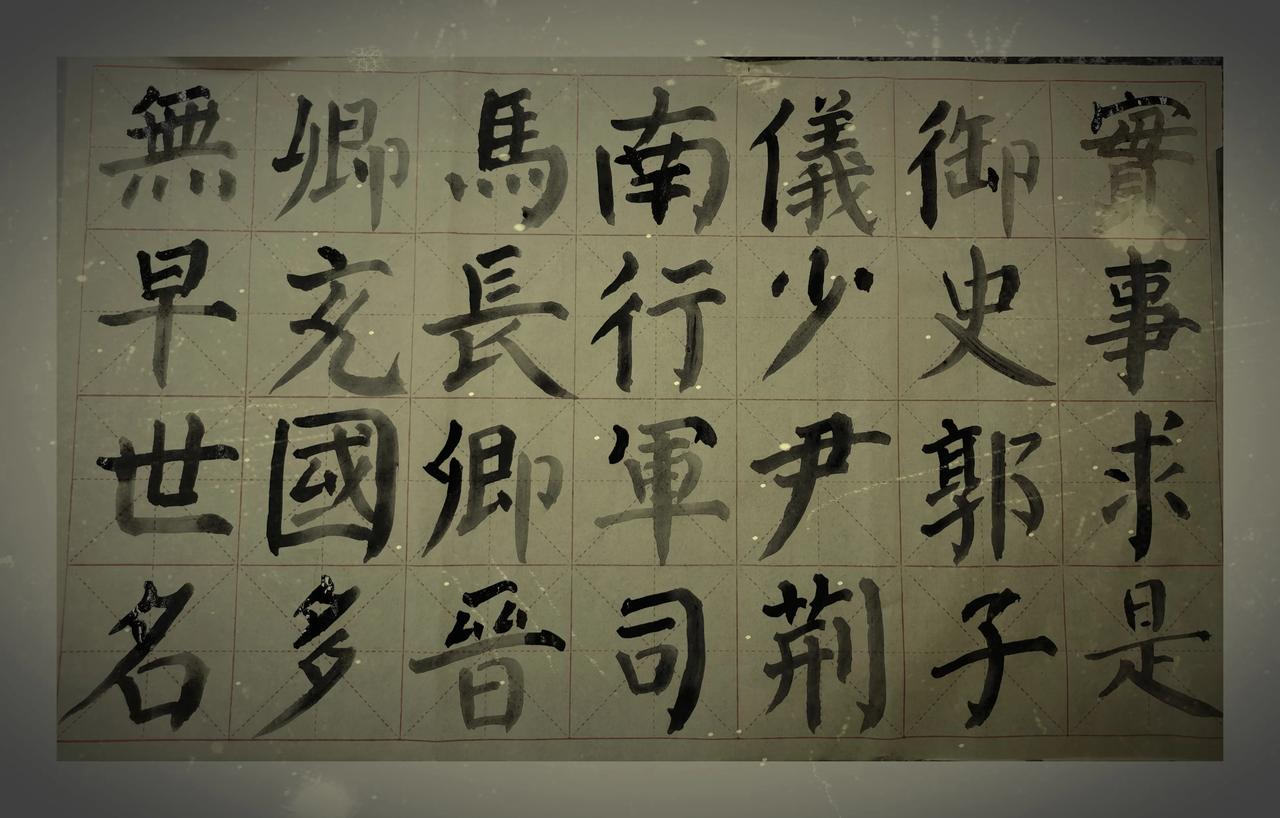 實事求是
御史郭子
儀少尹荊
南行軍司
馬長卿晉
卿充國多
無早世名